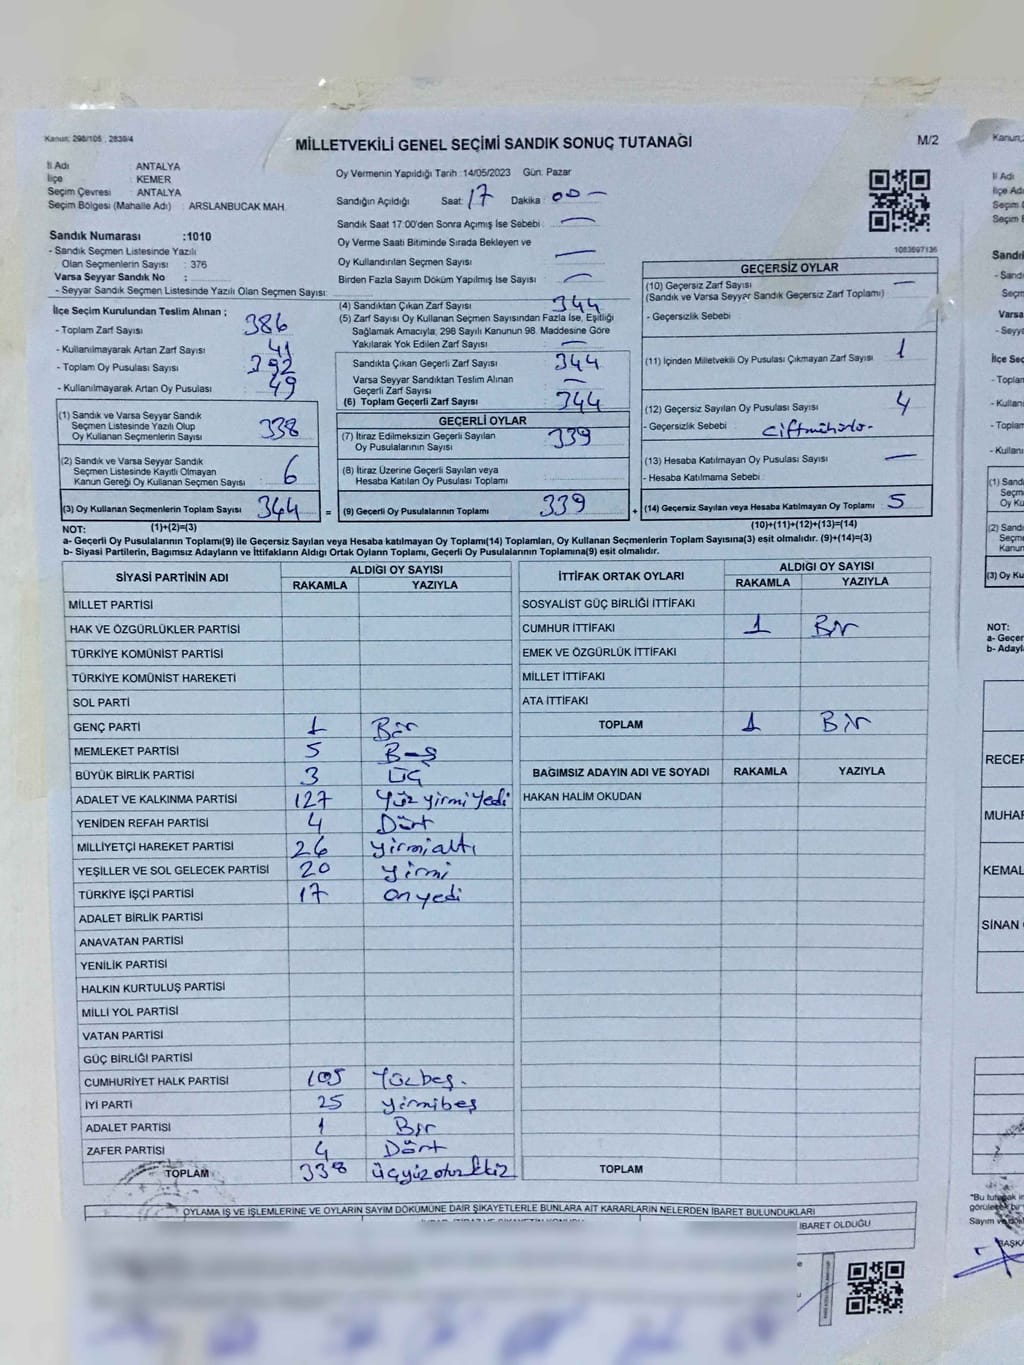 Kanun: 298/105 , 2839/4
MİLLETVEKİLİ GENEL SEÇİMİ SANDIK SONUÇ TUTANAĞI
M/2
İl Adı : ANTALYA
İlçe : KEMER
Seçim Çevresi : ANTALYA
Seçim Bölgesi (Mahalle Adı) : ARSLANBUCAK MAH.
Sandık Numarası :1010
- Sandık Seçmen Listesinde Yazılı
Olan Seçmenlerin Sayısı : 376
Varsa Seyyar Sandık No :
- Seyyar Sandık Seçmen Listesinde Yazılı Olan Seçmen Sayısı:
Oy Vermenin Yapıldığı Tarih :14/05/2023 Gün: Pazar
Sandığın Açıldığı Saat: 17 Dakika: 00 —
Sandık Saat 17:00'den Sonra Açımış İse Sebebi : —
Oy Verme Saati Bitiminde Sırada Bekleyen ve
Oy Kullandırılan Seçmen Sayısı —
Birden Fazla Sayım Döküm Yapılmış İse Sayısı —
1083697136
İlçe Seçim Kurulundan Teslim Alınan ;
- Toplam Zarf Sayısı 386
- Kullanılmayarak Artan Zarf Sayısı 41
- Toplam Oy Pusulası Sayısı 392
- Kullanılmayarak Artan Oy Pusulası 49
(1) Sandık ve Varsa Seyyar Sandık
Seçmen Listesinde Yazılı Olup
Oy Kullanan Seçmenlerin Sayısı 338
(2) Sandık ve Varsa Seyyar Sandık
Seçmen Listesinde Kayıtlı Olmayan
Kanun Gereği Oy Kullanan Seçmen Sayısı 6
(3) Oy Kullanan Seçmenlerin Toplam Sayısı 344 =
(1)+(2)=(3)
(4) Sandıktan Çıkan Zarf Sayısı 344
(5) Zarf Sayısı Oy Kullanan Seçmen Sayısından Fazla İse, Eşitliği
Sağlamak Amacıyla, 298 Sayılı Kanunun 98. Maddesine Göre
Yakılarak Yok Edilen Zarf Sayısı —
Sandıkta Çıkan Geçerli Zarf Sayısı 344
Varsa Seyyar Sandıktan Teslim Alınan
Geçerli Zarf Sayısı —
(6) Toplam Geçerli Zarf Sayısı 344
GEÇERLİ OYLAR
(7) İtiraz Edilmeksizin Geçerli Sayılan
Oy Pusulalarının Sayısı 339
(8) İtiraz Üzerine Geçerli Sayılan veya
Hesaba Katılan Oy Pusulası Toplamı
(9) Geçerli Oy Pusulalarının Toplamı 339 +
GEÇERSİZ OYLAR
(10) Geçersiz Zarf Sayısı —
(Sandık ve Varsa Seyyar Sandık Geçersiz Zarf Toplamı)
- Geçersizlik Sebebi :
(11) İçinden Milletvekili Oy Pusulası Çıkmayan Zarf Sayısı 1
(12) Geçersiz Sayılan Oy Pusulası Sayısı 4
- Geçersizlik Sebebi : çiftmühürlü-
(13) Hesaba Katılmayan Oy Pusulası Sayısı —
- Hesaba Katılmama Sebebi :
(14) Geçersiz Sayılan veya Hesaba Katılmayan Oy Toplamı 5
(10)+(11)+(12)+(13)=(14)
NOT:
a- Geçerli Oy Pusulalarının Toplamı(9) ile Geçersiz Sayılan veya Hesaba katılmayan Oy Toplamı(14) Toplamları, Oy Kullanan Seçmenlerin Toplam Sayısına(3) eşit olmalıdır. (9)+(14)=(3)
b- Siyasi Partilerin, Bağımsız Adayların ve İttifakların Aldığı Ortak Oyların Toplamı, Geçerli Oy Pusulalarının Toplamına(9) eşit olmalıdır.
SİYASİ PARTİNİN ADI ALDIĞI OY SAYISI
RAKAMLA YAZIYLA
MİLLET PARTİSİ
HAK VE ÖZGÜRLÜKLER PARTİSİ
TÜRKİYE KOMÜNİST PARTİSİ
TÜRKİYE KOMÜNİST HAREKETİ
SOL PARTİ
GENÇ PARTİ 1 Bir
MEMLEKET PARTİSİ 5 Beş
BÜYÜK BİRLİK PARTİSİ 3 Üç
ADALET VE KALKINMA PARTİSİ 127 Yüz yirmi Yedi
YENİDEN REFAH PARTİSİ 4 Dört
MİLLİYETÇİ HAREKET PARTİSİ 26 yirmialtı
YEŞİLLER VE SOL GELECEK PARTİSİ 20 yirmi
TÜRKİYE İŞÇİ PARTİSİ 17 onyedi
ADALET BİRLİK PARTİSİ
ANAVATAN PARTİSİ
YENİLİK PARTİSİ
HALKIN KURTULUŞ PARTİSİ
MİLLİ YOL PARTİSİ
VATAN PARTİSİ
GÜÇ BİRLİĞİ PARTİSİ
CUMHURİYET HALK PARTİSİ 105 Yüzbeş.
İYİ PARTİ 25 yirmibeş
ADALET PARTİSİ 1 Bir
ZAFER PARTİSİ 4 Dört
TOPLAM 338 üçyüzotuzsekiz
İTTİFAK ORTAK OYLARI ALDIĞI OY SAYISI
RAKAMLA YAZIYLA
SOSYALİST GÜÇ BİRLİĞİ İTTİFAKI
CUMHUR İTTİFAKI 1 Bir
EMEK VE ÖZGÜRLÜK İTTİFAKI
MİLLET İTTİFAKI
ATA İTTİFAKI
TOPLAM 1 Bir
BAĞIMSIZ ADAYIN ADI VE SOYADI RAKAMLA YAZIYLA
HAKAN HALİM OKUDAN
TOPLAM
OYLAMA İŞ VE İŞLEMLERİNE VE OYLARIN SAYIM DÖKÜMÜNE DAİR ŞİKAYETLERLE BUNLARA AİT KARARLARIN NELERDEN İBARET BULUNDUKLARI
İBARET OLDUĞU
Kanun:
İl Adı
İlçe Adı
Seçim
Seçim
NOT:
a- Geçer
b- Adayl
RECEP
MUHAR
KEMAL
SİNAN